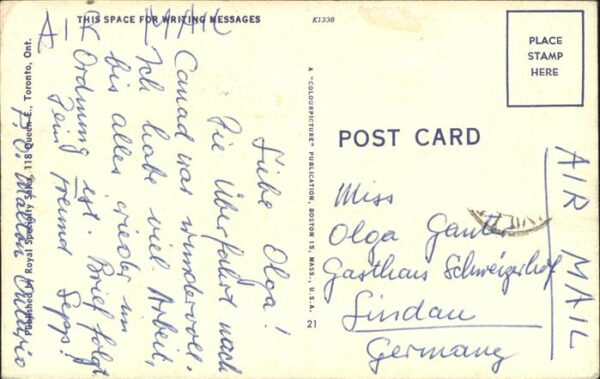 THIS SPACE FOR WRITING MESSAGES
AIR MAIL
Liebe Olga!
Die Überfahrt nach
Canad war wundervoll.
Ich habe viel Arbeit,
bis alles wieder in
Ordnung ist. Brief folgt.
Dein Freund Sepp!
Ontario
Published by Royal Specialty Sales, 118 Queen E., Toronto, Ont.
K1338
A "COLOURPICTURE" PUBLICATION, BOSTON 15, MASS., U.S.A.
21
PLACE
STAMP
HERE
POST CARD
Miss
Olga Gautter
Gasthaus Schweizerhof
Lindau
Germany
AIR MAIL